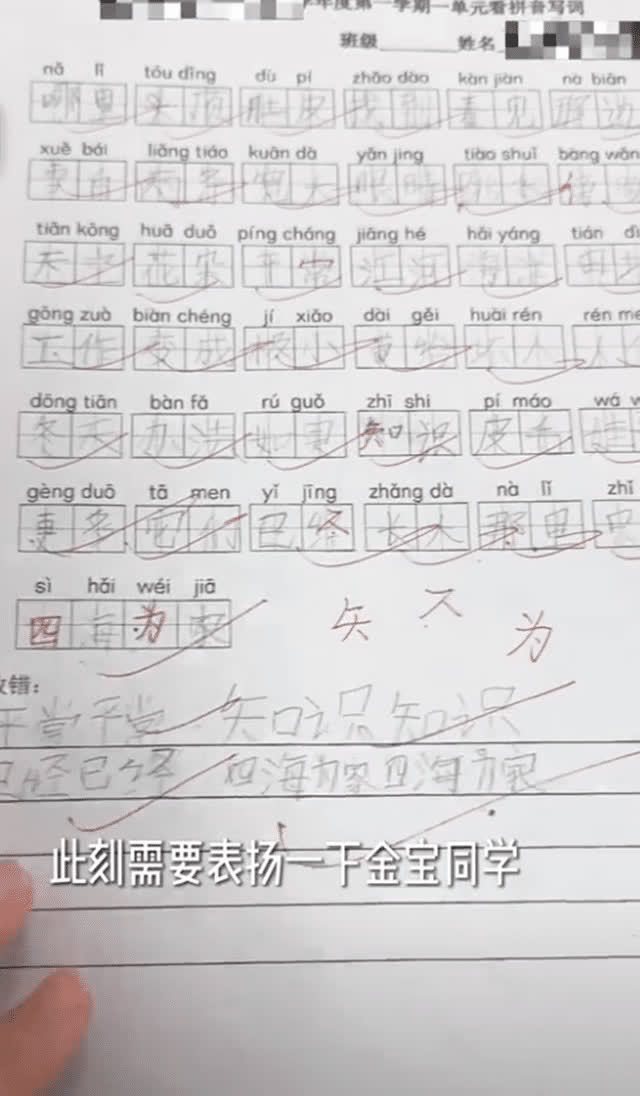 年度第一学期一单元看拼音写词
班级 姓名
nǎ lǐ tóu dǐng dù pí zhǎo dào kàn jiàn nà biān
哪里 头顶 肚皮 找到 看见 那边
xuě bái liǎng tiáo kuān dà yǎn jing tiào shuǐ bàng wǎn
雪白 两条 宽大 眼睛 跳水 傍
tiān kōng huā duǒ píng cháng jiāng hé hǎi yáng tián dì
天空 花朵 平常 江河 海洋 田
gōng zuò biàn chéng jí xiǎo dài gěi huài rén rén me
工作 变成 极小 给 坏人 人
dōng tiān bàn fǎ rú guǒ zhī shi pí máo wá w
冬天 办法 如果 知识 皮毛 娃
gèng duō tā men yǐ jīng zhǎng dà nà lǐ zhī
更多 它们 已经 长大 那里
sì hǎi wéi jiā
四海为家 矢 为
改错：
平堂平堂 知识知识
已经已经 四海为家四海为家
此刻需要表扬一下金宝同学